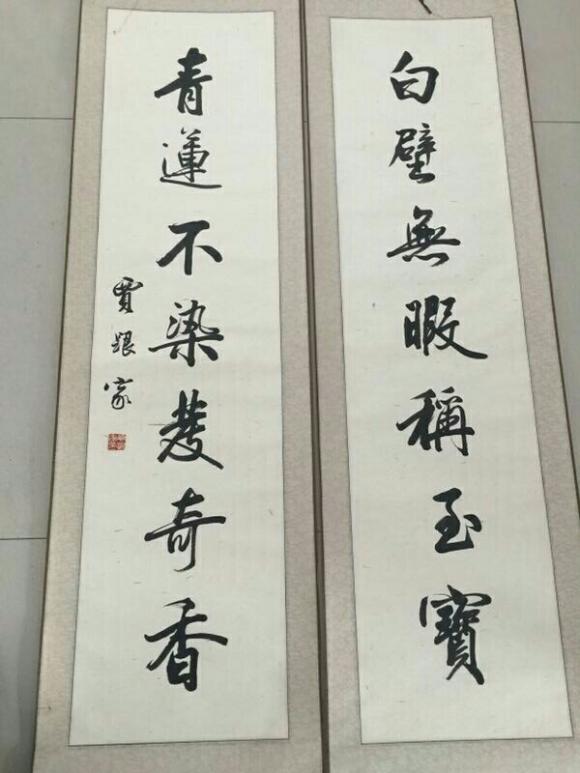 白璧無暇稱至寶
青蓮不染發奇香
賈跟家